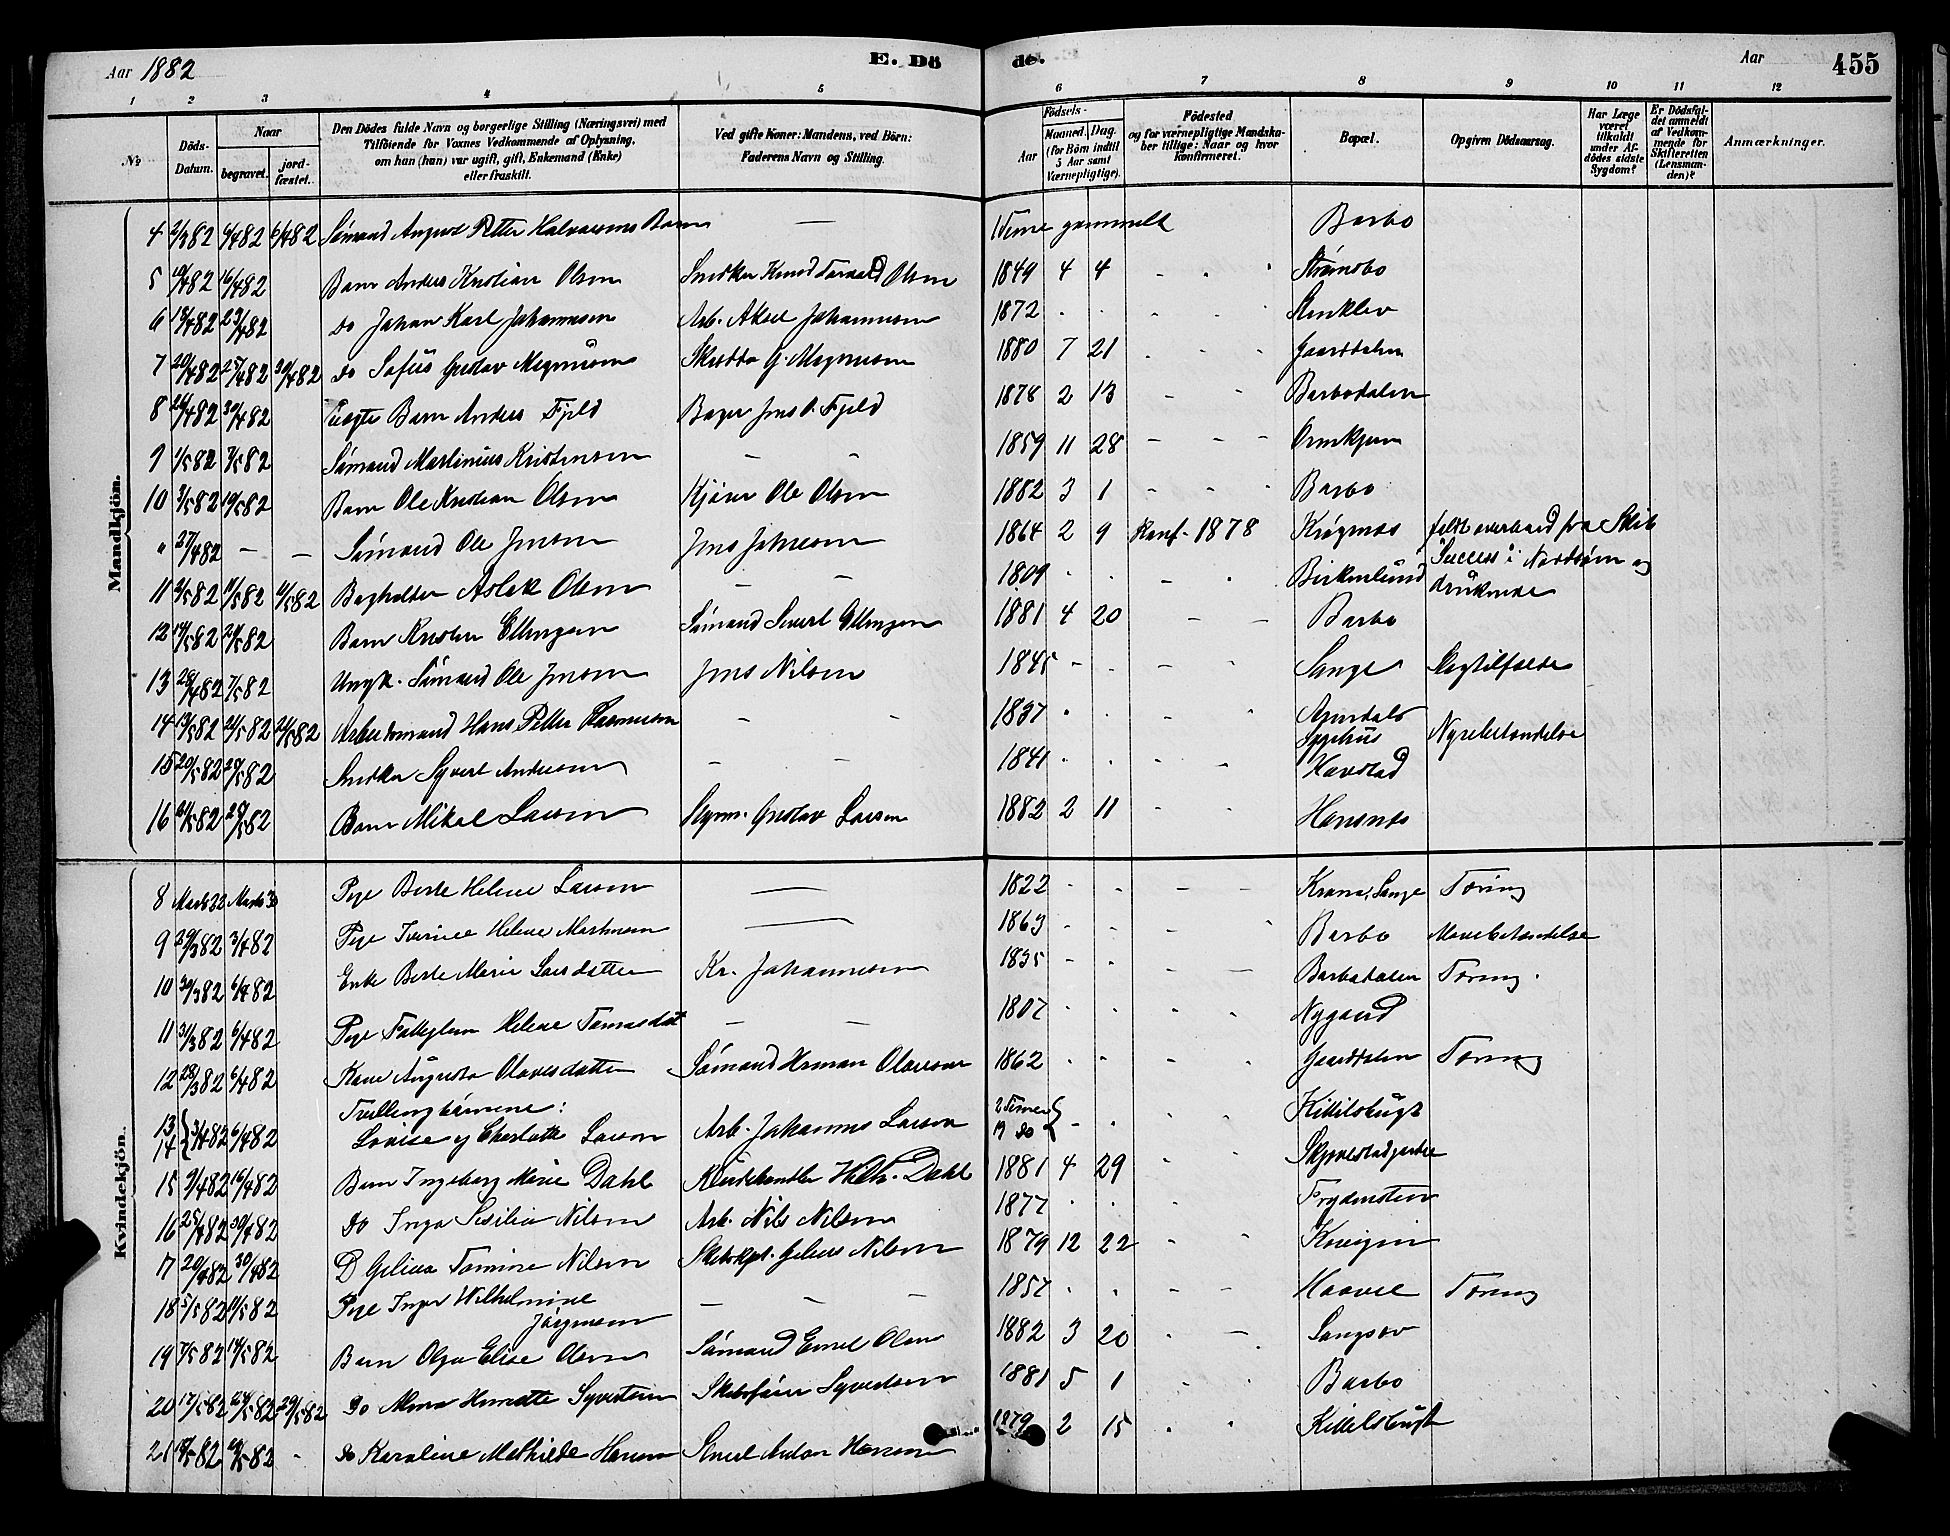 Aar 1882
E. Dö
de.
Aar
455
1 2 3 4 5 6 7 8 9 10 11 12
No
Döds-Datum.
Naar
begravet.
jordfæstet.
Den Dödes fulde Navn og borgerlige Stilling (Næringsvei) med
Tilföiende for Voxnes Vedkommende af Oplysning,
om han (hun) var ugift, gift, Enkemand (Enke)
eller fraskilt.
Ved gifte Koner: Mandens, ved Börn:
Faderens Navn og Stilling.
Födsels-
Aar
Maaned. Dag.
(for Börn indtil
5 Aar samt
Værnepligtige).
Födested
og for værnepligtige Mandska-
ber tillige: Naar og hvor
konfirmeret.
Bopæl.
Opgiven Dödsaarsag.
Har Læge
været
tilkaldt
under Af-
dödes sidste
Sygdom?
Er Dödsfal-
det anmeldt
af Vedkom-
mende for
Skifteretten
(Lensman-
den)?
Anmærkninger.
Mandkjön.
4 2/3 82 6/4 82 6/4 82 Sömand August Petter Halvorsens Barn — 1 Time gammelt Barbo
5 10/4 82 16/4 82 Barn Anders Kristian Olsen Snedker Knud Olsen 1849 4 4 Strømsbo
6 13/4 82 23/4 82 Do Johan Karl Johannesen Arb. Aksel Johannesen 1872 Stenklev
7 20/4 82 25/4 82 30/4 82 Do Sofus Gustav Magnusen G. Magnusen 1880 7 21 Gaarddalen
8 24/4 82 30/4 82 Barn Anders Fjeld Bager Jens O. Fjeld 1878 2 13 Barbodalen
9 1/5 82 7/5 82 Sömand Martinius Kristensen — — 1859 11 28
10 3/5 82 19/5 82 Barn Ole Kristian Olsen Kjører Ole Olsen 1882 3 1 Barbo
" 27/4 82 — — Sömand Ole Jensen Jens Johnsen 1864 2 9 Konf. 1878 Krøgenes faldt overbord fra Skib
Success i Nordsøen og
druknede
11 2/5 82 11/5 82 11/5 82 Aslak Olsen — — 1809 Birkenlund
12 14/5 82 21/5 82 Barn Kristen Ellingsen Sömand Sivert Ellingsen 1881 4 20 Barbo
13 28/4 82 7/5 82 Ungk. Sömand Ole Jensen Jens Nilsen 1845 Lange Slagtilfælde
14 13/5 82 21/5 82 21/5 82 Arbeidsmand Hans Petter Rasmussen — — 1837 Arendals
Sygehus Nyrebetændelse
15 20/5 82 29/5 82 Snedker Syvert Andersen — — 1841 Havstad
16 21/5 82 29/5 82 Barn Mikal Larsen Styrm. Gustav Larsen 1882 2 11 Hansnes
Kvindekjön.
8 Marts 22 Marts 30 Pige Berte Helene Larsen — 1822 Krana, Lange Tæring
9 29/3 82 3/4 82 Pige Iverine Helene Martinsen — 1863 Barbo Mavebetændelse
10 30/3 82 6/4 82 Enke Berte Marie Larsdatter Kr. Johannesen 1835 Barbodalen Tæring.
11 31/3 82 6/4 82 Pige Helene — — 1807 Nygaard
12 28/3 82 6/4 82 Kone Augusta Olavesdatter Sömand Herman Olavesen 1862 Gaarddalen Tæring
13
14 3/4 82 6/4 82 Tvillingbørnene:
Lovise og Charlotte Larsen Arb. Johannes Larsen 2 Timer
19 do Kittelsbugt
15 9/4 82 16/4 82 Barn Ingeborg Marie Dahl Kludehandler Wilh. Dahl 1881 4 29
16 25/4 82 30/4 82 Do Inga Sesilia Nilsen Arb. Nils Nilsen 1877 Frydensten
17 20/4 82 30/4 82 D Gelina Tomine Nilsen Skibskpt. Gelius Nilsen 1879 12 22
18 5/5 82 11/5 82 Pige Inger Wilhelmine
Jørgensen — — — 1857 Haavet Tæring
19 7/5 82 14/5 82 Barn Olga Elise Olsen Sömand Emil Olsen 1882 3 20 Langsæv
20 17/5 82 24/5 82 29/5 82 Do Anna Henriette Syvertsen Skibsfører Syvertsen 1881 5 1 Barbo
21 18/5 82 28/5 82 - Do Karoline Mathilde Hansen Anton Hansen 1879 2 15 Kittelsbugt